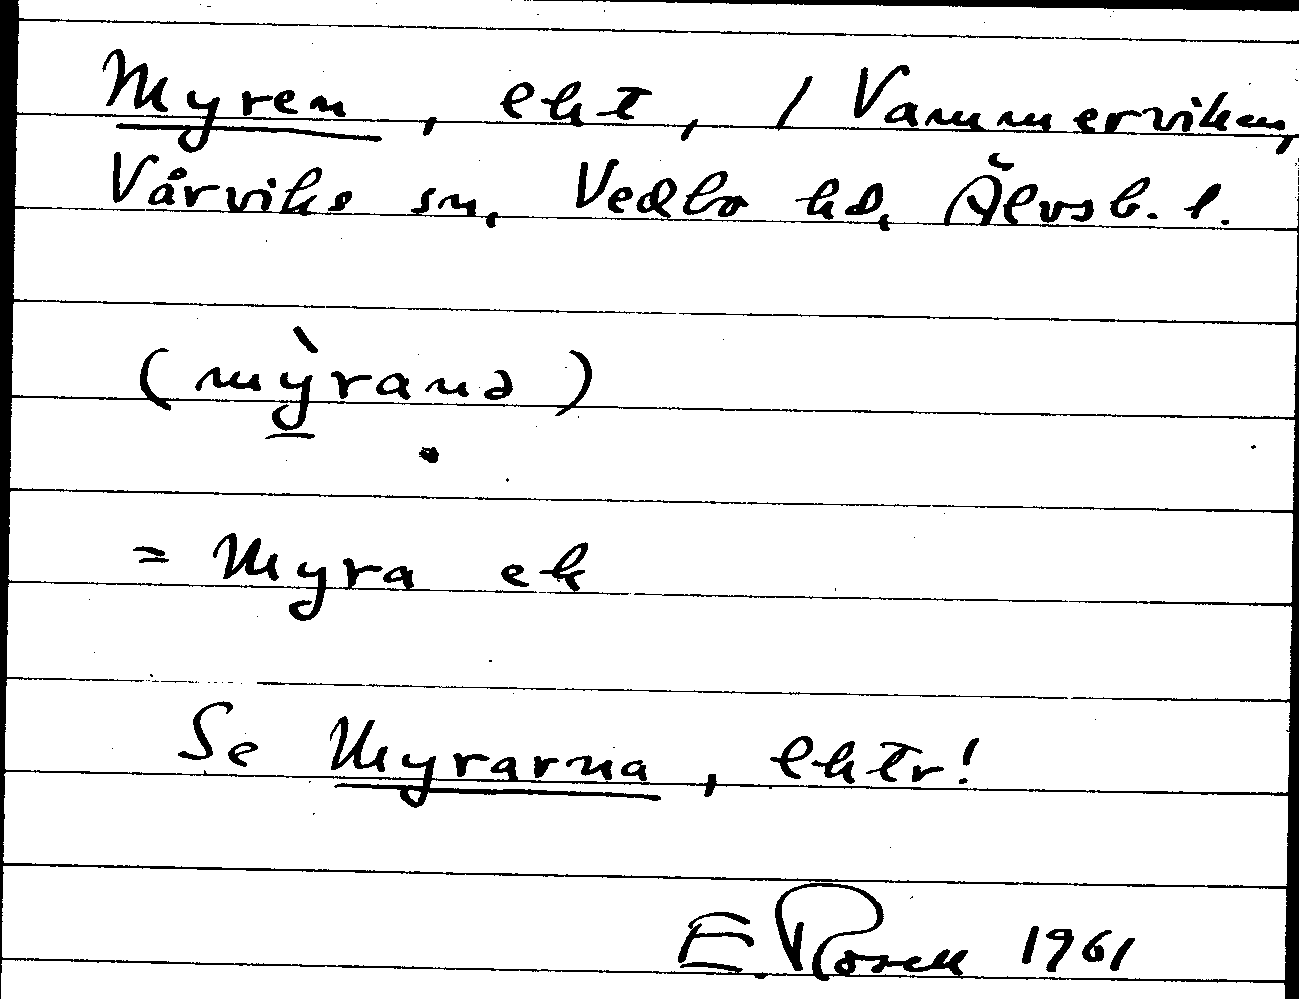 Myren, ekt, / Vammerviken,
Vårviks sn, Vedbo hd, Älvsb. l.
(mỳranə)
= Myra ek
Se Myrarna, ektr!
E. Rosell 1961